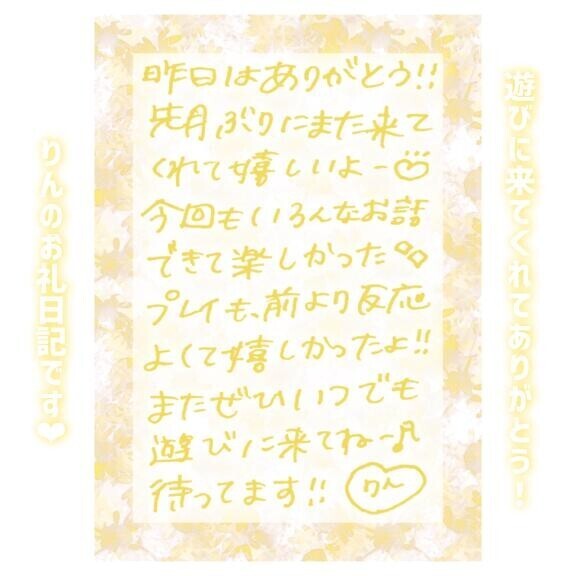 遊びに来てくれてありがとう！
昨日はありがとう!!
先月ぶりにまた来て
くれて嬉しいよー♡
今回もいろんなお話
できて楽しかった
プレイも、前より反応
よくて嬉しかったよ!!
またぜひいつでも
遊びに来てねー♪
待ってます!!
りん
りんのお礼日記です❤